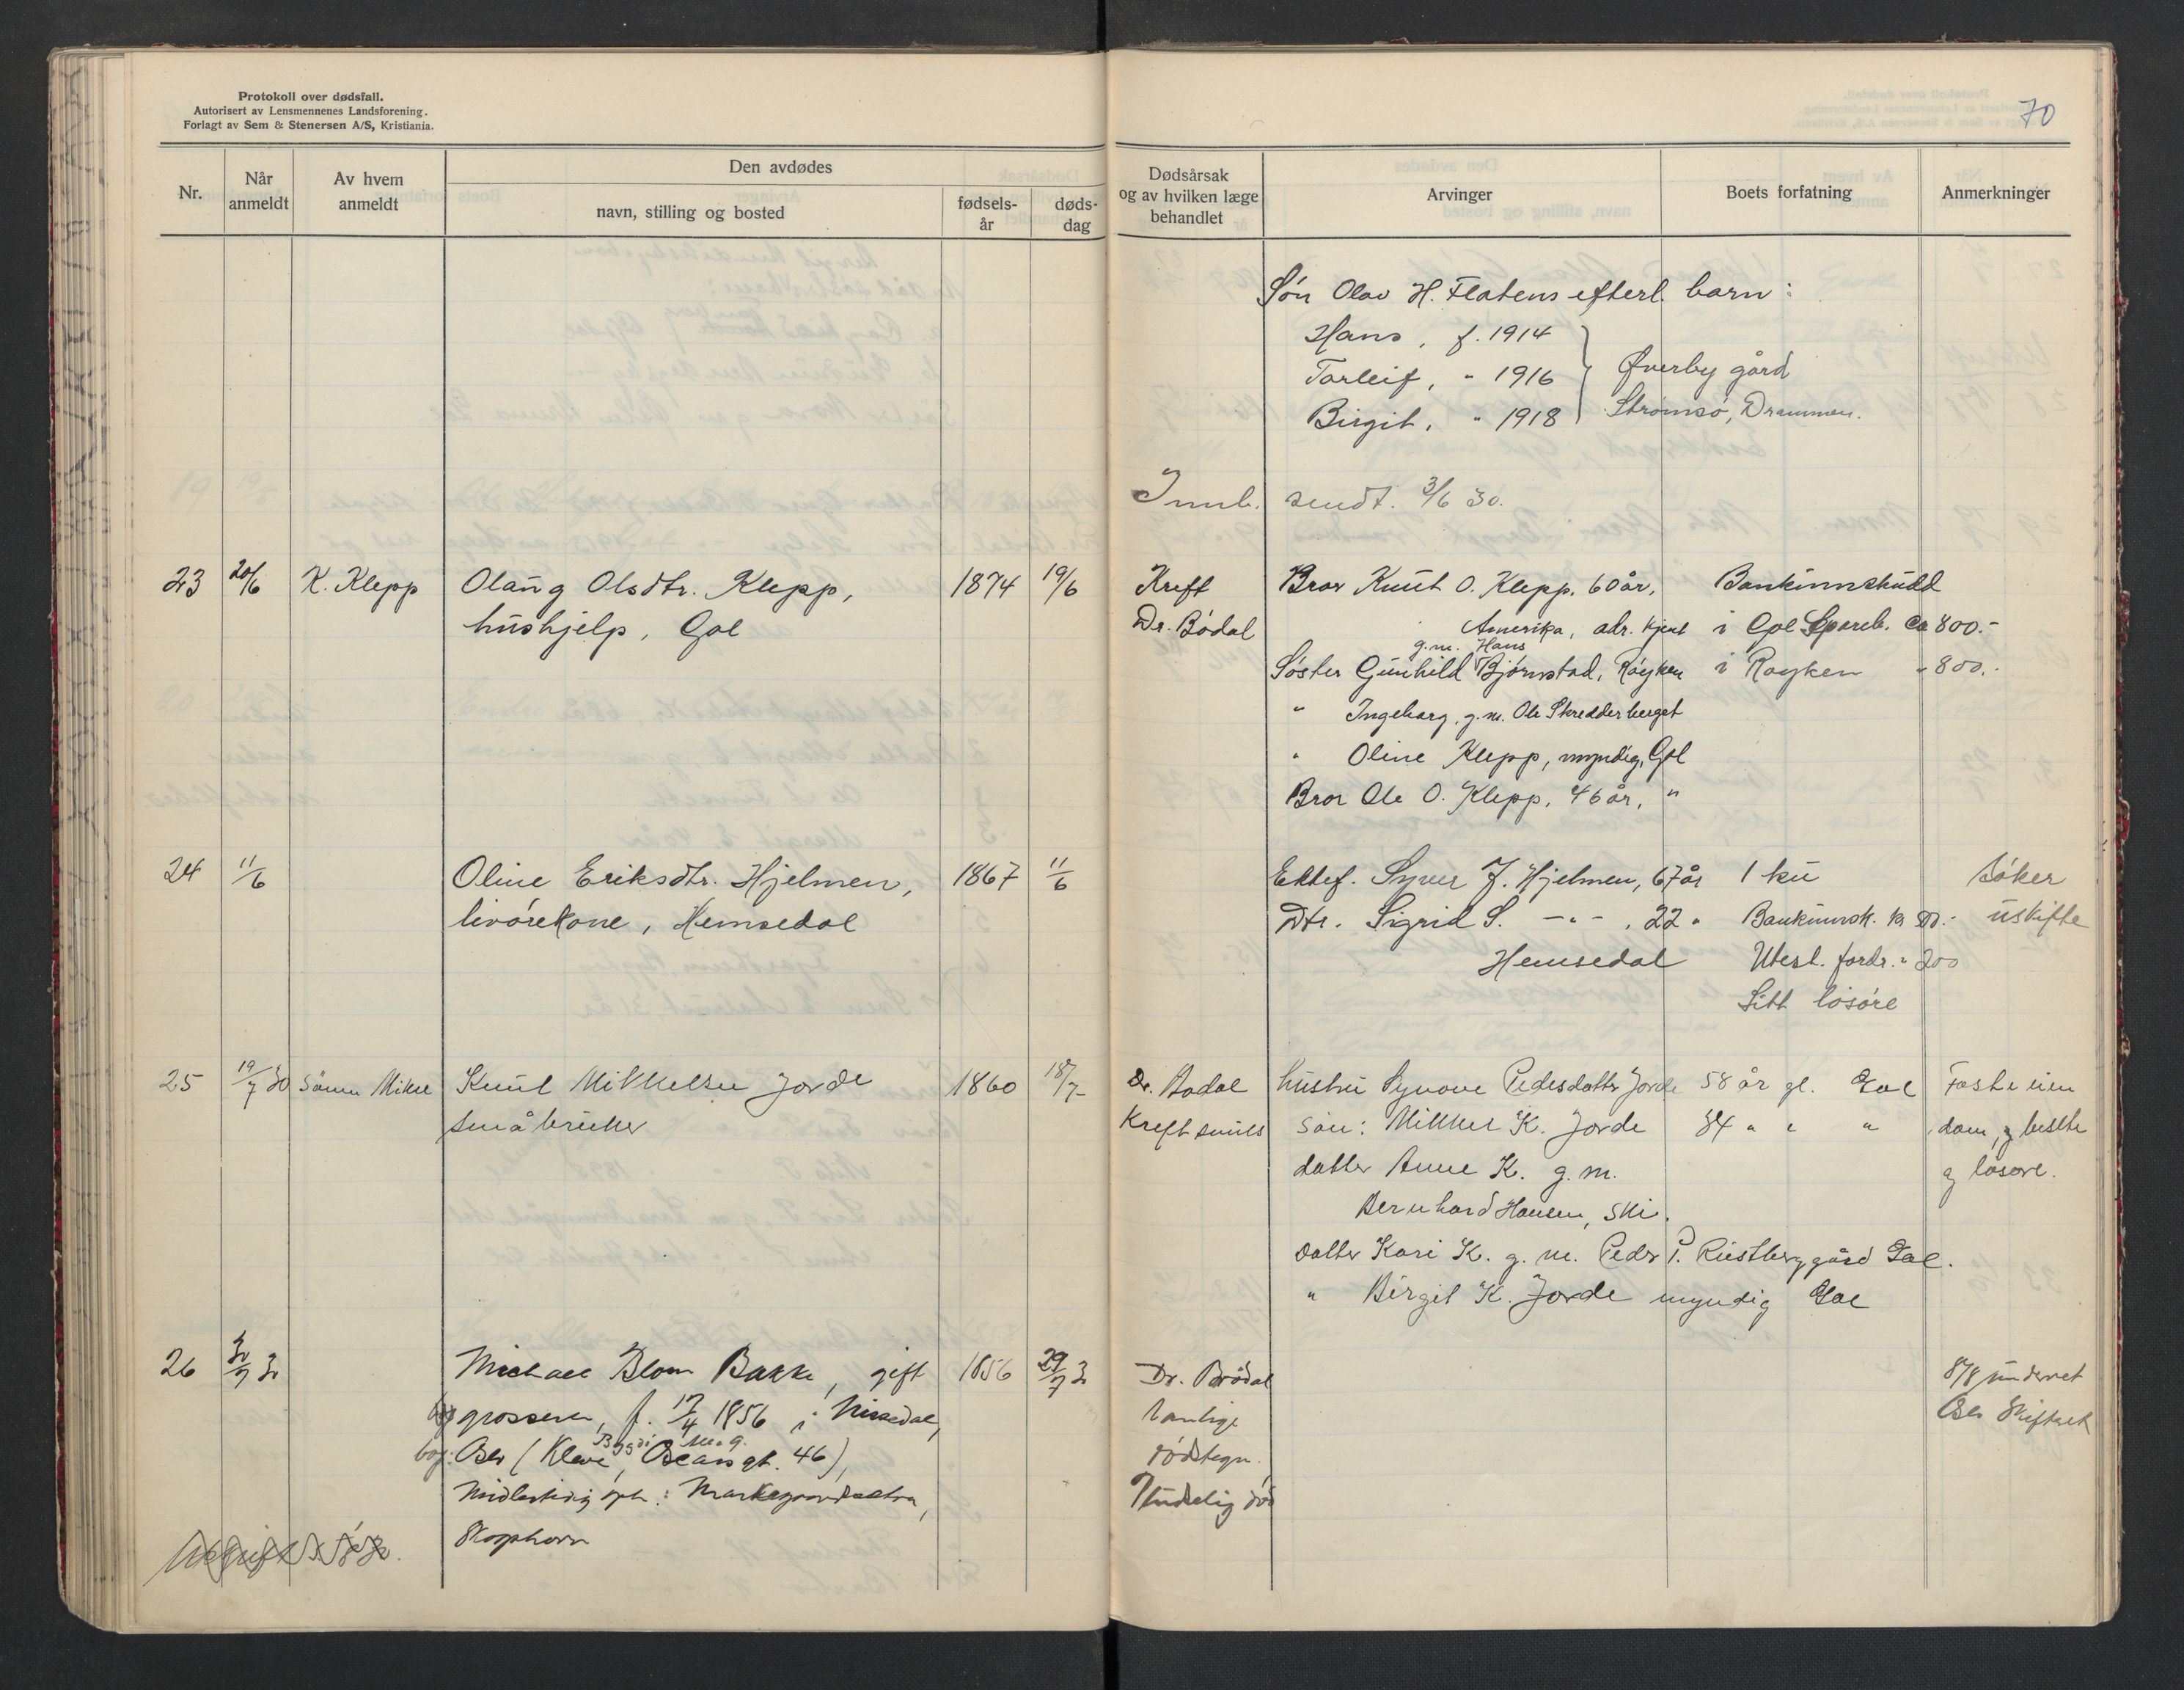 Protokoll over dødsfall.
Autorisert av Lensmennenes Landsforening.
Forlagt av Sem & Stenersen A/S, Kristiania.
70
Nr.
Når anmeldt
Av hvem anmeldt
Den avdødes
navn, stilling og bosted
fødsels-år
døds-dag
Dødsårsak og av hvilken læge behandlet
Arvinger
Boets forfatning
Anmerkninger
Søn Olav H. Flatens efterl. barn:
Hans, f. 1914
Torleif, " 1916
Birgit, " 1918
Øverby gård
Strømsø, Drammen.
Innb. sendt. 3/6 30.
23 20/6 K. Klepp Olaug Olsdtr. Klepp, 1874 19/6 Kreft Bror Knut O. Klepp, 60 år, Bankinnskudd
hushjelp, Gol Dr. Bødal Amerika, adr. kjent i Gol Spareb. ca 800.-
g.m. Hans
Søster Gunhild Bjørnstad, Røyken i Røyken " 800.-
" Ingeborg, g.m. Ole Skredderberget
" Oline Klepp, myndig, Gol
Bror Ole O. Klepp, 46 år, "
24 11/6 Oline Eriksdtr. Hjelmen, 1867 11/6 Ektef. Syver J. Hjelmen, 67 år 1 ku Søker
livørekone, Hemsedal Dtr. Sigrid S. -"- , 22 " Bankinnsk. kr 500.- uskifte
Hemsedal Utest. fordr. " 200
Litt løsøre
25 19/7 30 Sønn Mikkel Knut Mikkelsen Jorde 1860 18/7 Dr. Bødal hustru Synøve Pedersdatter Jorde 58 år gl. Gol Faste eien
småbruker Kreft søn: Mikkel K. Jorde 34 " " " dom, og besette
datter Anne K. g.m. og løsøre.
Bernhard Hansen, Ski.
datter Kari K. g.m. Peder P. Rustberggård Gol.
" Birgit K. Jorde myndig Gol
26 30/7 30 Michael Blom Bakke, gift 1856 29/7 30 Dr. Brødal 8/8 underret
grosserer, f. 17/4 1856 i Nissedal, vanlige Oslo Skifteret
Byggdi M. g.
bop: Oslo (Kleve, Oscarsgt. 46), dødstegn.
Midlertidig oph.: Markegårdsetra, Pludselig død
Skophorn